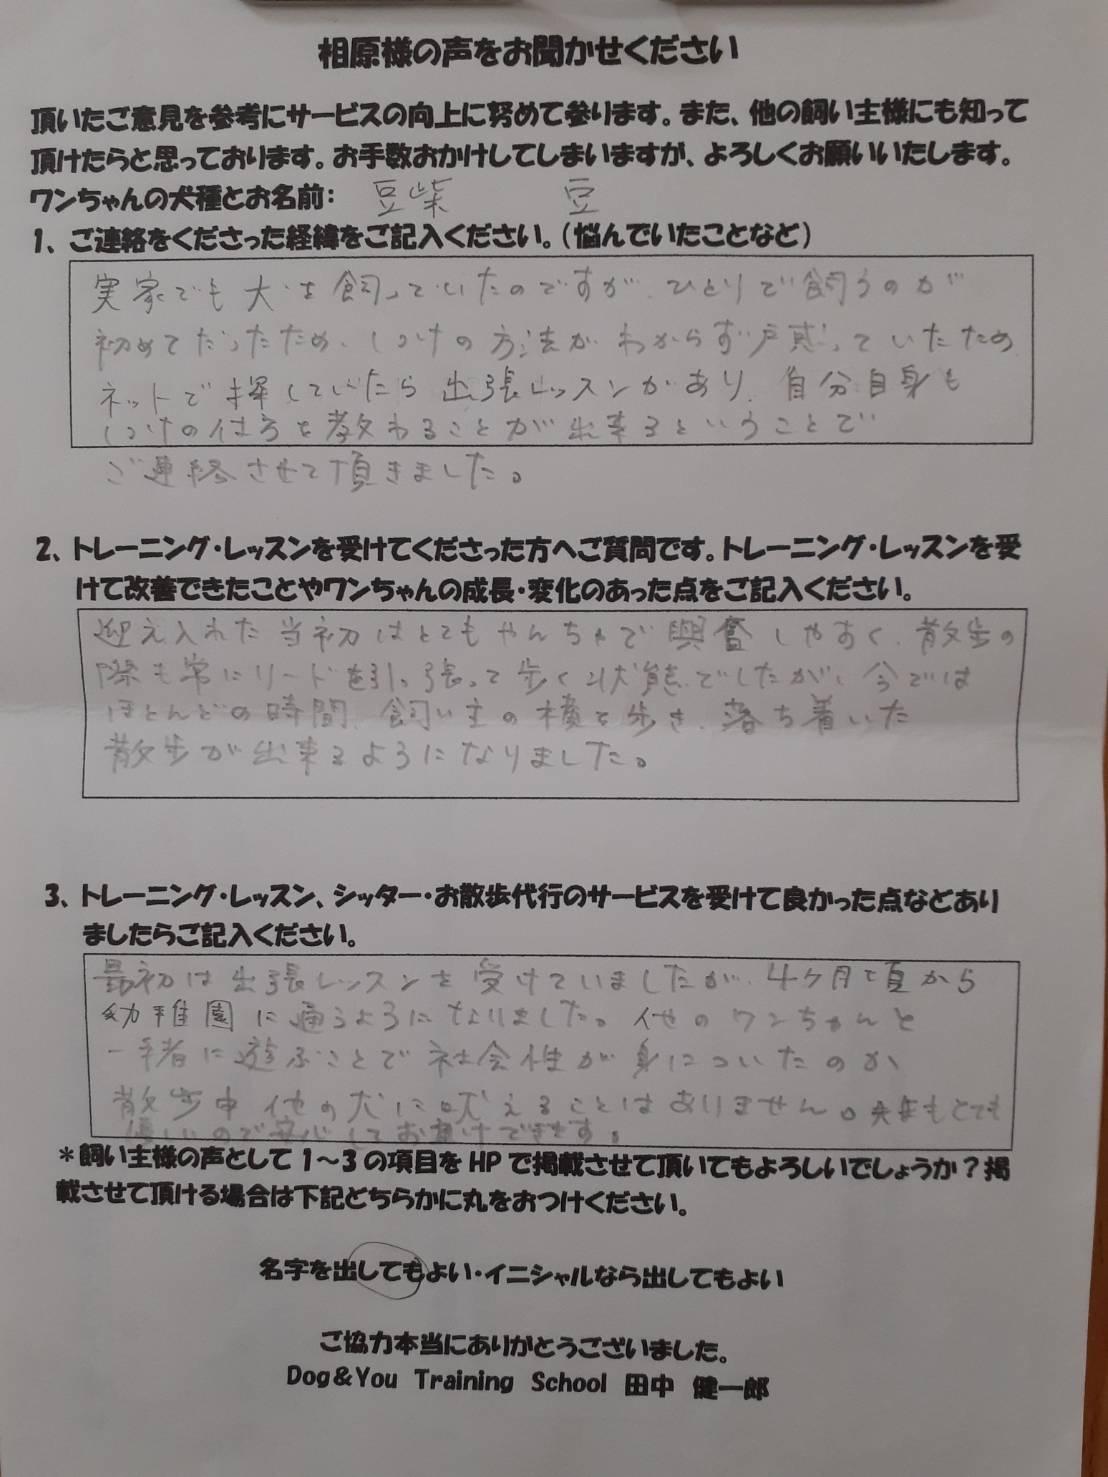 相原様の声をお聞かせください
頂いたご意見を参考にサービスの向上に努めて参ります。また、他の飼い主様にも知って
頂けたらと思っております。お手数おかけしてしまいますが、よろしくお願いいたします。
ワンちゃんの犬種とお名前： 豆柴 豆
1、ご連絡をくださった経緯をご記入ください。（悩んでいたことなど）
実家でも犬を飼っていたのですが、ひとりで飼うのが
初めてだったため、しつけの方法がわからず戸惑っていたため
ネットで探していたら出張レッスンがあり、自分自身も
しつけの仕方を教わることが出来るということで
ご連絡させて頂きました。
2、トレーニング・レッスンを受けてくださった方へご質問です。トレーニング・レッスンを受
けて改善できたことやワンちゃんの成長・変化のあった点をご記入ください。
迎え入れた当初はとてもやんちゃで興奮しやすく、散歩の
際も常にリードを引っ張って歩く状態でしたが、今では
ほとんどの時間、飼い主の横を歩き、落ち着いた
散歩が出来るようになりました。
3、トレーニング・レッスン、シッター・お散歩代行のサービスを受けて良かった点などあり
ましたらご記入ください。
最初は出張レッスンを受けていましたが、4ヶ月頃から
幼稚園に通うようになりました。他のワンちゃんと
一緒に遊ぶことで社会性が身についたのか
散歩中他の犬に吠えることはありません。先生もとても
優しいので安心してお預けできます。
＊飼い主様の声として1～3の項目をHPで掲載させて頂いてもよろしいでしょうか？掲
載させて頂ける場合は下記どちらかに丸をおつけください。
名字を出してもよい・イニシャルなら出してもよい
ご協力本当にありがとうございました。
Dog＆You Training School 田中 健一郎